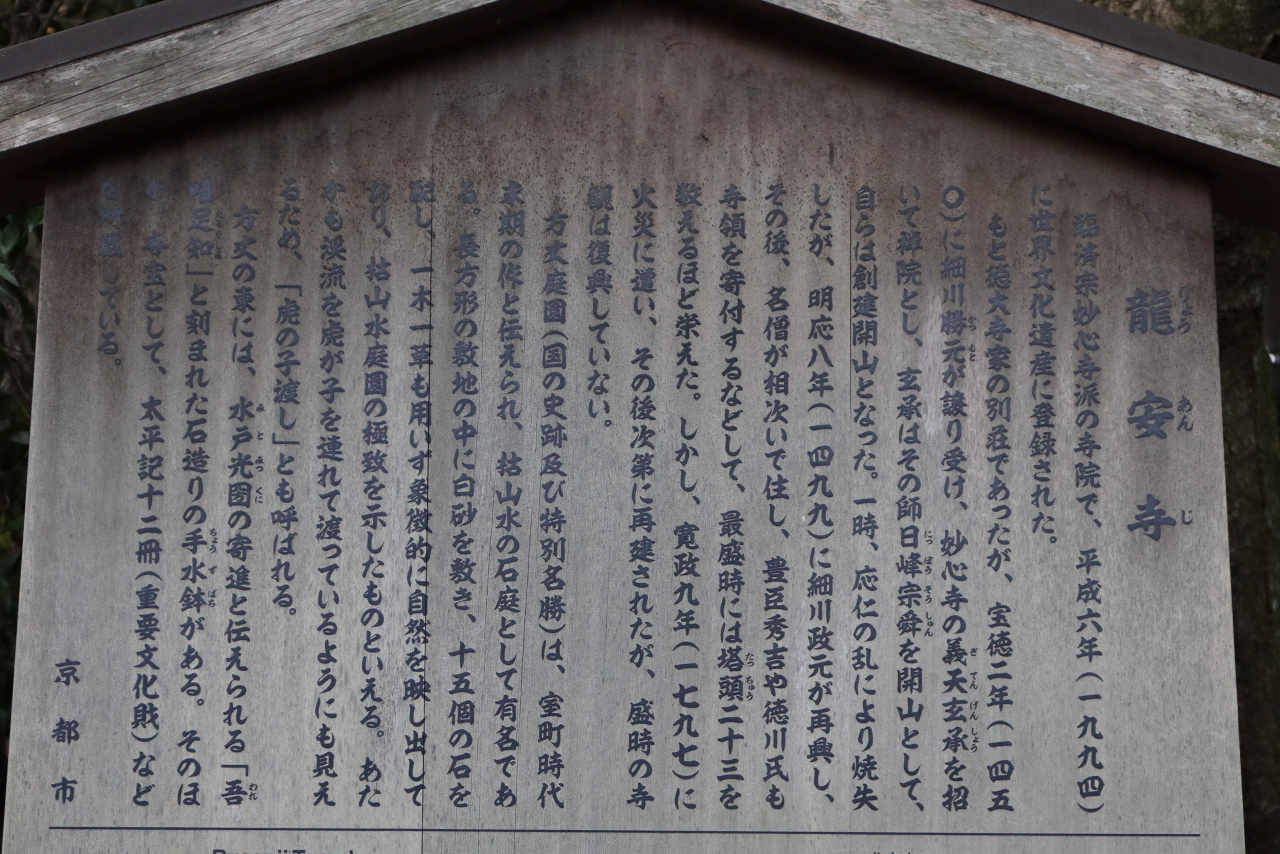 龍安寺
臨済宗妙心寺派の寺院で、平成六年(一九九四)
に世界文化遺産に登録された。
もと徳大寺家の別荘であったが、宝徳二年(一四五
〇)に細川勝元が譲り受け、妙心寺の義天玄承を招
いて禅院とし、玄承はその師日峰宗舜を開山として、
自らは創建開山となった。一時、応仁の乱により焼失
したが、明応八年(一四九九)に細川政元が再興し、
その後、名僧が相次いで住し、豊臣秀吉や徳川氏も
寺領を寄付するなどして、最盛時には塔頭二十三を
数えるほど栄えた。しかし、寛政九年(一七九七)に
火災に遭い、その後次第に再建されたが、盛時の寺
観は復興していない。
方丈庭園(国の史跡及び特別名勝)は、室町時代
末期の作と伝えられ、枯山水の石庭として有名であ
る。長方形の敷地の中に白砂を敷き、十五個の石を
配し、一木一草も用いず象徴的に自然を映し出して
おり、枯山水庭園の極致を示したものといえる。あた
かも渓流を虎が子を連れて渡っているようにも見え
るため、「虎の子渡し」とも呼ばれる。
方丈の東には、水戸光圀の寄進と伝えられる「吾
唯足知」と刻まれた石造りの手水鉢がある。そのほ
か、寺宝として、太平記十二冊(重要文化財)など
を所蔵している。
京都市